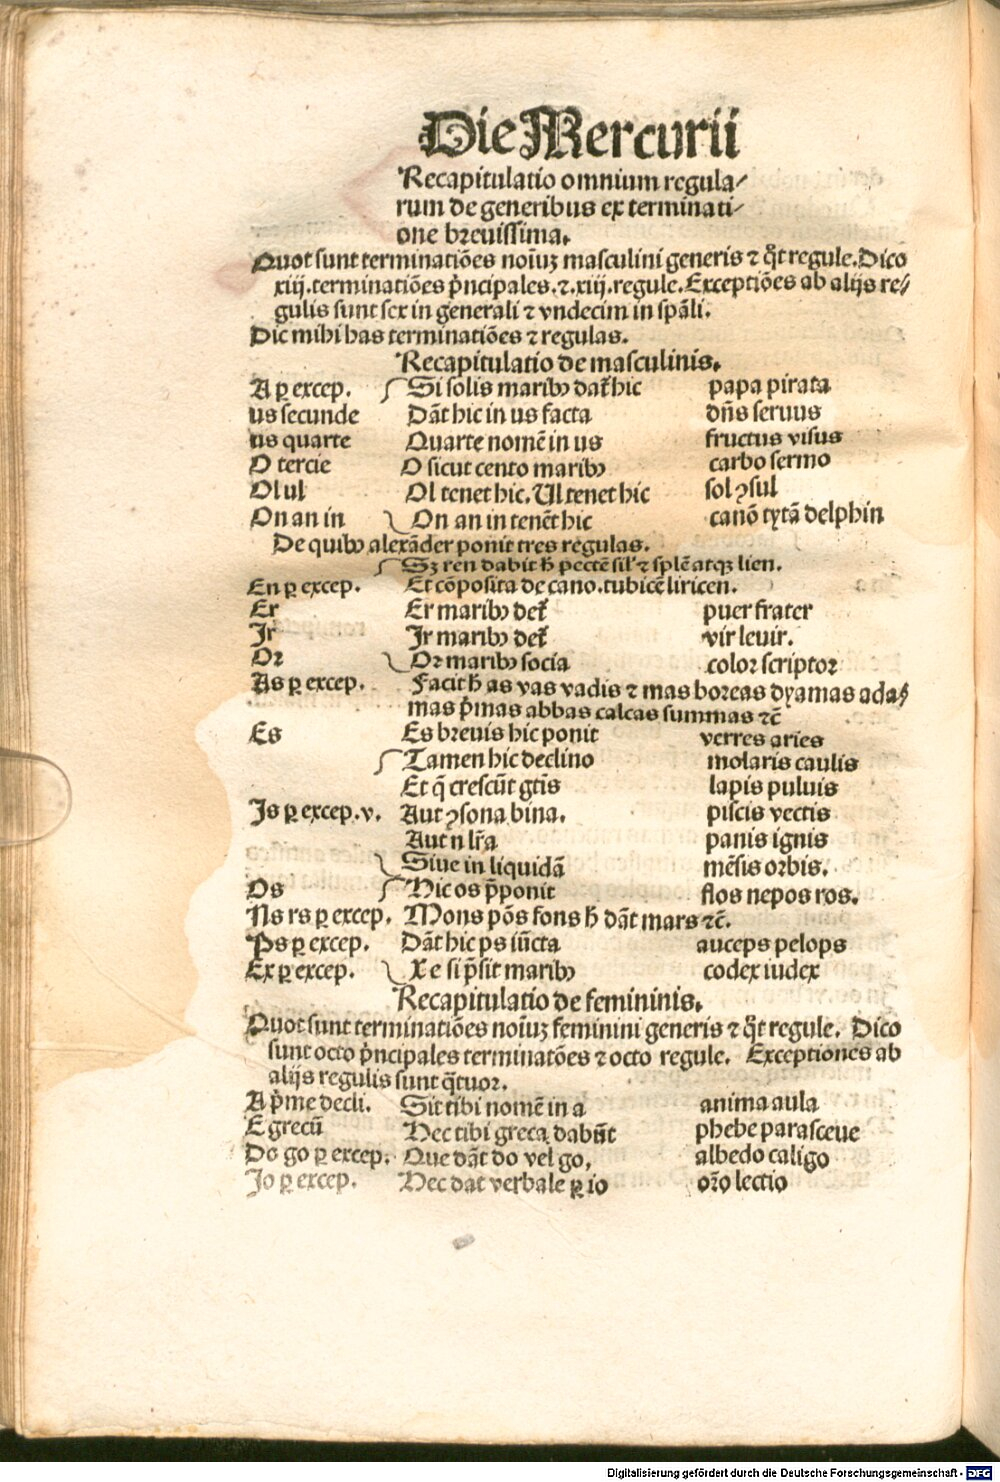 Die Mercurii
Recapitulatio omnium regula⸗
rum de generibus ex terminati⸗
one breuissima.
Quot sunt terminatiōes noīuꝫ masculini generis ⁊ q̄t regule. Dico
xiij. terminatiōes p̄ncipales. ⁊. xiij. regule. Exceptiōes ab alijs re⸗
gulis sunt sex in generali ⁊ vndecim in sp̄ali.
Dic mihi has terminatiōes ⁊ regulas.
Recapitulatio de masculinis.
A ꝑ excep. Si solis maribꝰ dat᷑ hic papa pirata
us secunde Dāt hic in us facta dn̄s seruus
us quarte Quarte nomē in us fructus visus
O tercie O sicut cento maribꝰ carbo sermo
Ol ul Ol tenet hic. Ul tenet hic sol ꝯsul
On an in On an in tenēt hic canō tytā delphin
De quibꝰ alexāder ponit tres regulas.
Sꝫ ren dabit h̄ pectē sil᷑ ⁊ splē atqꝫ lien.
En ꝑ excep. Et cōposita de cano. tubicē liricen.
Er Er maribꝰ det᷑ puer frater
Ir Ir maribꝰ det᷑ vir leuir.
Or Or maribꝰ socia color scriptor
As ꝑ excep. Facit h̄ as vas vadis ⁊ mas boreas dyamas ada⸗
mas p̄mas abbas calcas summas ⁊c̄
Es Es breuis hic ponit verres aries
Tamen hic declino molaris caulis
Et q̄ crescūt gt̄is lapis puluis
Is ꝑ excep. v. Aut ꝯsona bina. piscis vectis
Aut n lr̄a panis ignis
Siue in liquidā mēsis orbis.
Os Hic os p̄ponit flos nepos ros.
Ns rs ꝑ excep. Mons pōs fons h̄ dāt mars ⁊c̄.
Ps ꝑ excep. Dāt hic ps iūcta auceps pelops
Ex ꝑ excep. X e si p̄sit maribꝰ codex iudex
Recapitulatio de femininis.
Quot sunt terminatiōes noīuꝫ feminini generis ⁊ q̄t regule. Dico
sunt octo p̄ncipales terminatōes ⁊ octo regule. Exceptiones ab
alijs regulis sunt q̄tuor.
A p̄me decli. Sit tibi nomē in a anima aula
E grecū Hec tibi greca dabūt phebe parasceue
Do go ꝑ excep. Que dāt do vel go, albedo caligo
Io ꝑ excep. Hec dat verbale ꝑ io or̄o lectio
Digitalisierung gefördert durch die Deutsche Forschungsgemeinschaft - DFG